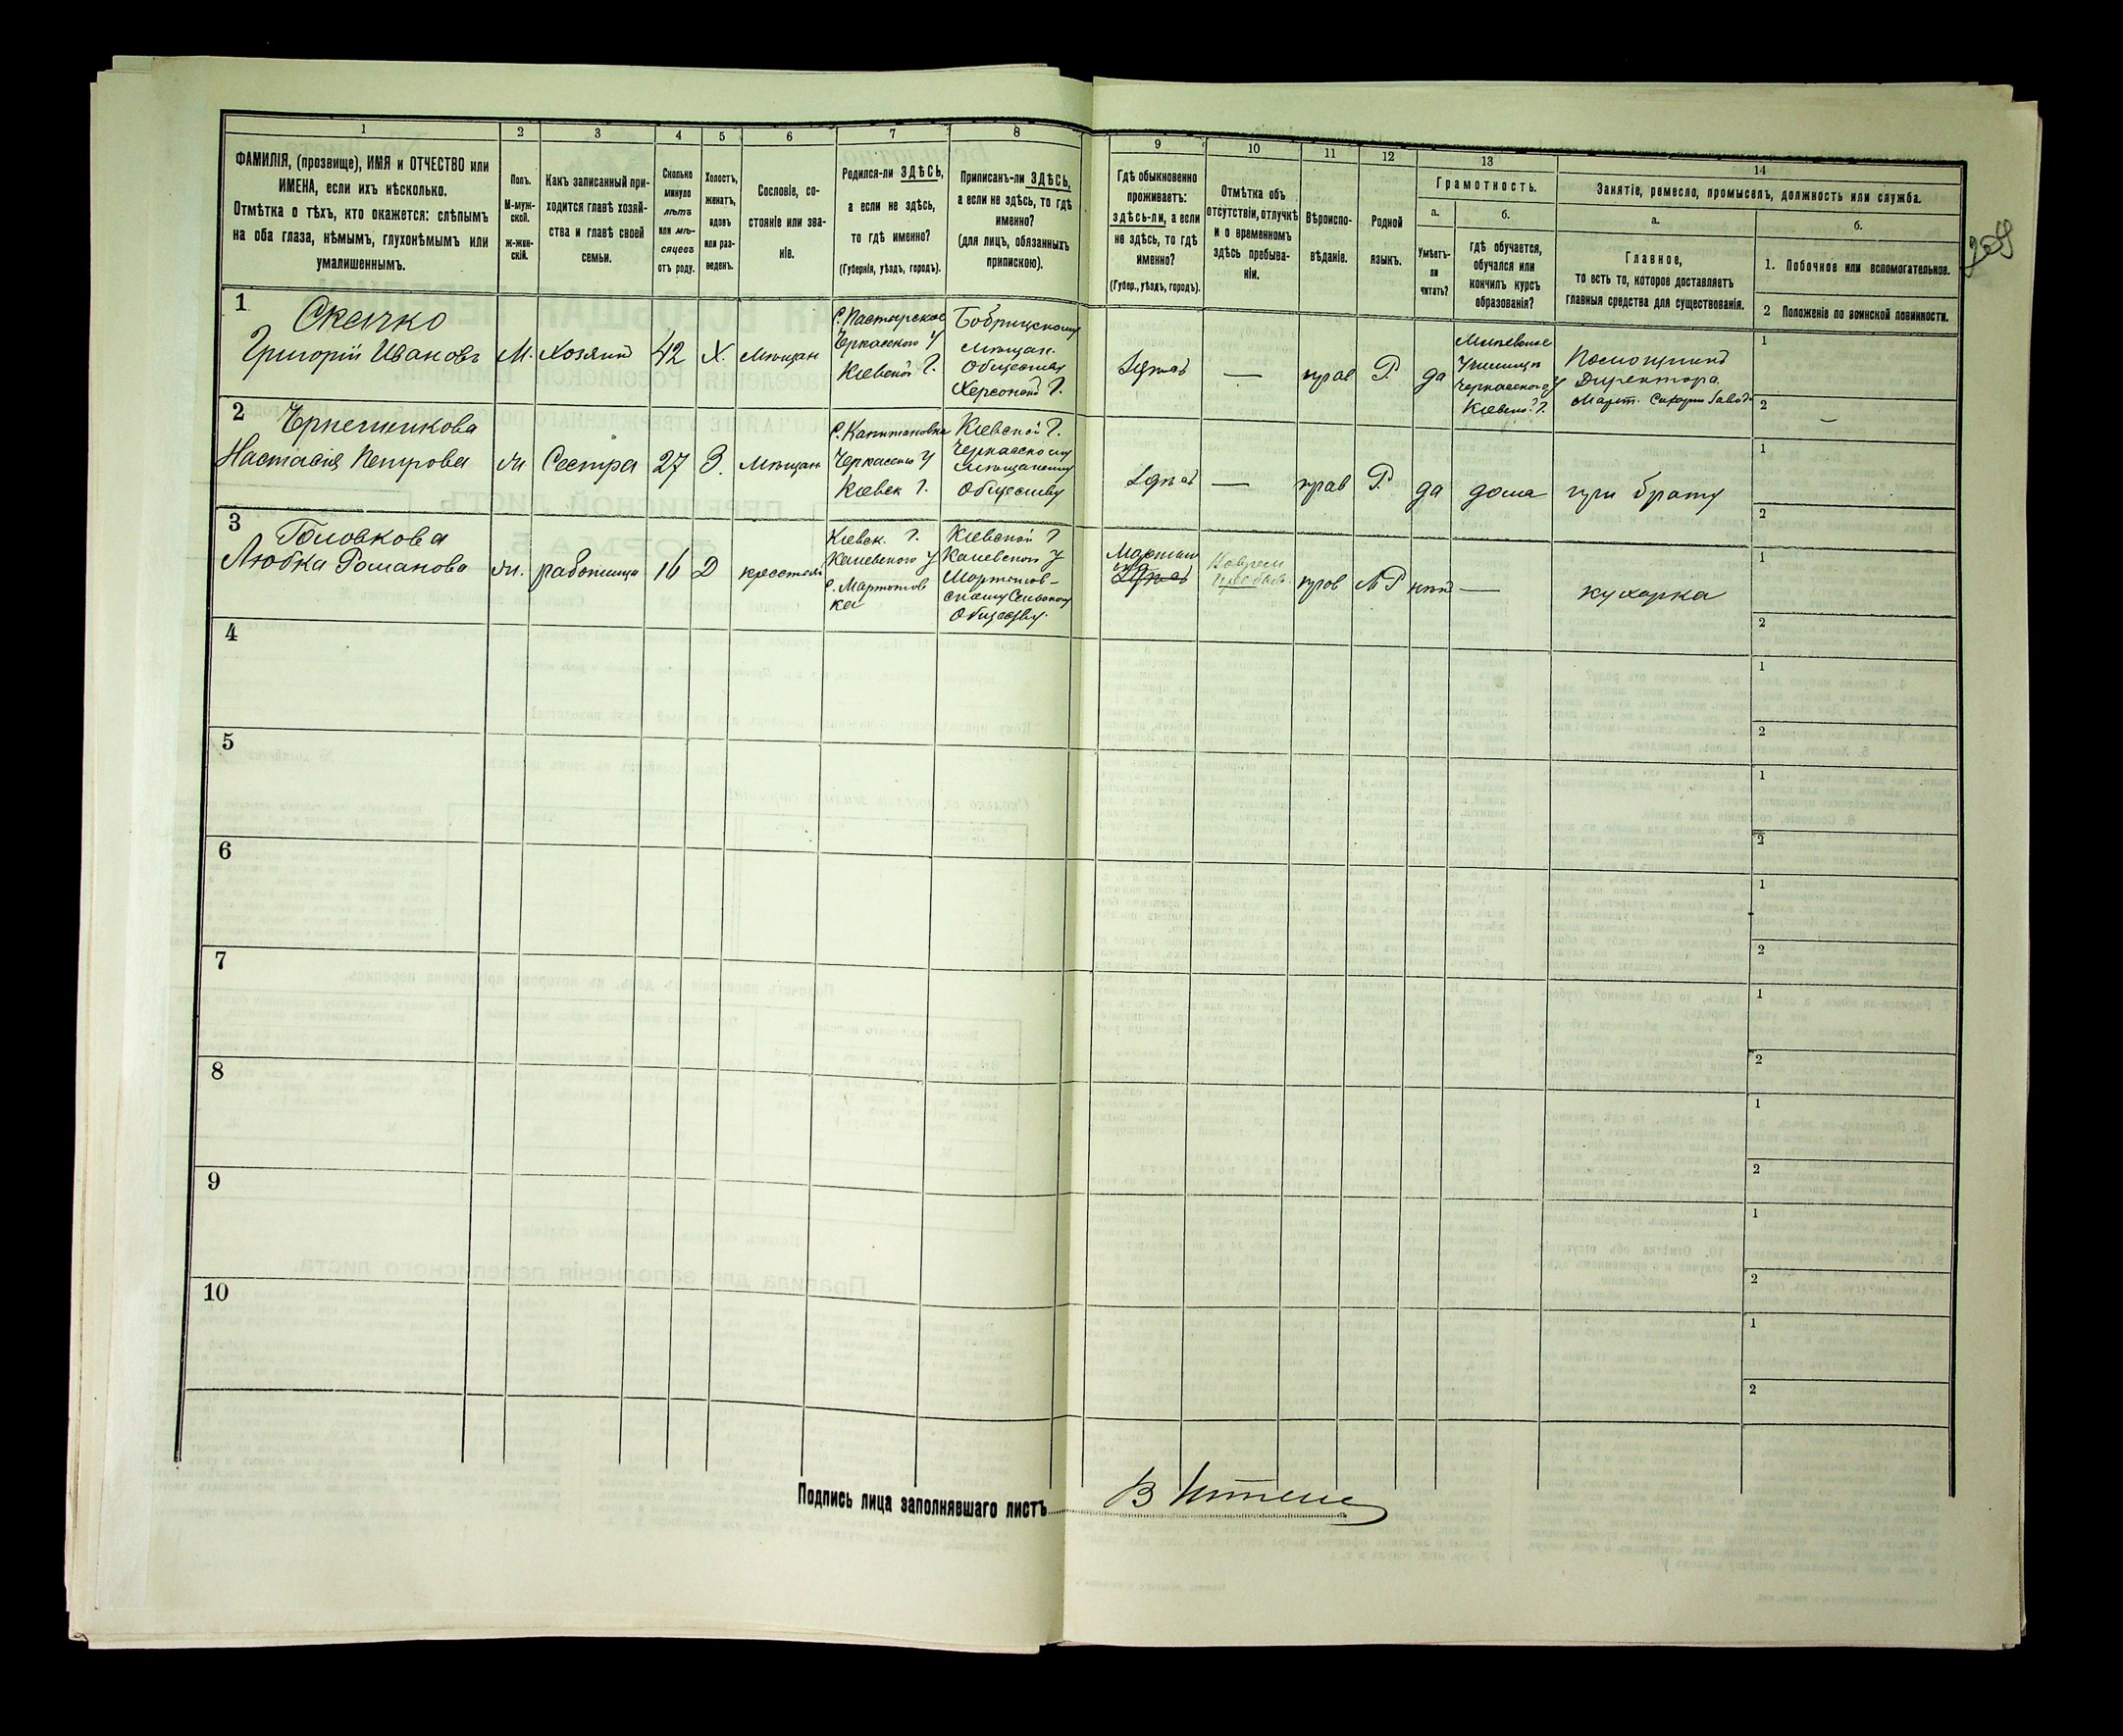 1 2 3 4 5 6 7 8 9 10 11 12 13 14
ФАМИЛІЯ, (прозвище), ИМЯ и ОТЧЕСТВО или
ИМЕНА, если ихъ нѣсколько.
Отмѣтка о тѣхъ, кто окажется: слѣпымъ
на оба глаза, нѣмымъ, глухонѣмымъ или
умалишеннымъ.
Полъ.
М-муж-
ской.
ж-жен-
скій.
Какъ записанный при-
ходится главѣ хозяй-
ства и главѣ своей
семьи.
Сколько
минуло
лѣтъ
или мѣ-
сяцевъ
отъ роду.
Холостъ,
женатъ,
вдовъ
или раз-
веденъ.
Сословіе, со-
стояніе или зва-
ніе.
Родился-ли ЗДѢСЬ,
а если не здѣсь,
то гдѣ именно?
(Губернія, уѣздъ, городъ).
Приписанъ-ли ЗДѢСЬ,
а если не здѣсь, то гдѣ
именно?
(для лицъ, обязанныхъ
припискою).
Гдѣ обыкновенно
проживаетъ:
здѣсь-ли, а если
не здѣсь, то гдѣ
именно?
(Губер., уѣздъ, городъ).
Отмѣтка объ
отсутствіи, отлучкѣ
и о временномъ
здѣсь пребыва-
ніи.
Вѣроиспо-
вѣданіе.
Родной
языкъ.
Грамотность.
а.
Умѣетъ-
ли
читать?
б.
гдѣ обучается,
обучался или
кончилъ курсъ
образованія?
Занятіе, ремесло, промыселъ, должность или служба.
а.
Главное,
то есть то, которое доставляетъ
главныя средства для существованія.
б.
1. Побочное или вспомогательное.
2 Положеніе по воинской повинности.
1
Скачко
Григорій Ивановъ
М.
Хозяинъ
42
Х.
Мѣщан
С. Пастырское
Черкаского У
Кіевской Г.
Бобринскому
Мѣщан.
Обществу
Херсонской Г.
Здѣсь
—
прав
Р.
да
Училище
Черкасского У
Кіевской Г.
Помощникъ
Директора
Март. Сахарн Завода
1
2
—
2
Настасія Петрова
ж
Сестра
27
З.
Мѣщан
С. Капитановка
Черкаского У
Кіевск Г.
Кіевской Г.
Черкасскому
Мѣщанскому
Обществу
Здѣсь
—
прав
Р.
да
дома
при брату
1
2
3
Головкова
Любка Романова
ж.
работница
16
Д
крестьян
Кіевск. Г.
Каневского У
С. Мартынов
ка
Кіевской Г
Каневского У
Мартынов-
скому Сельскому
Обществу.
Мартын
овка
Здѣсь
прав
МР
нѣтъ
—
кухарка
1
2
4
1
2
5
1
2
6
1
2
7
1
2
8
1
2
9
1
2
10
1
2
Подпись лица заполнявшаго листъ